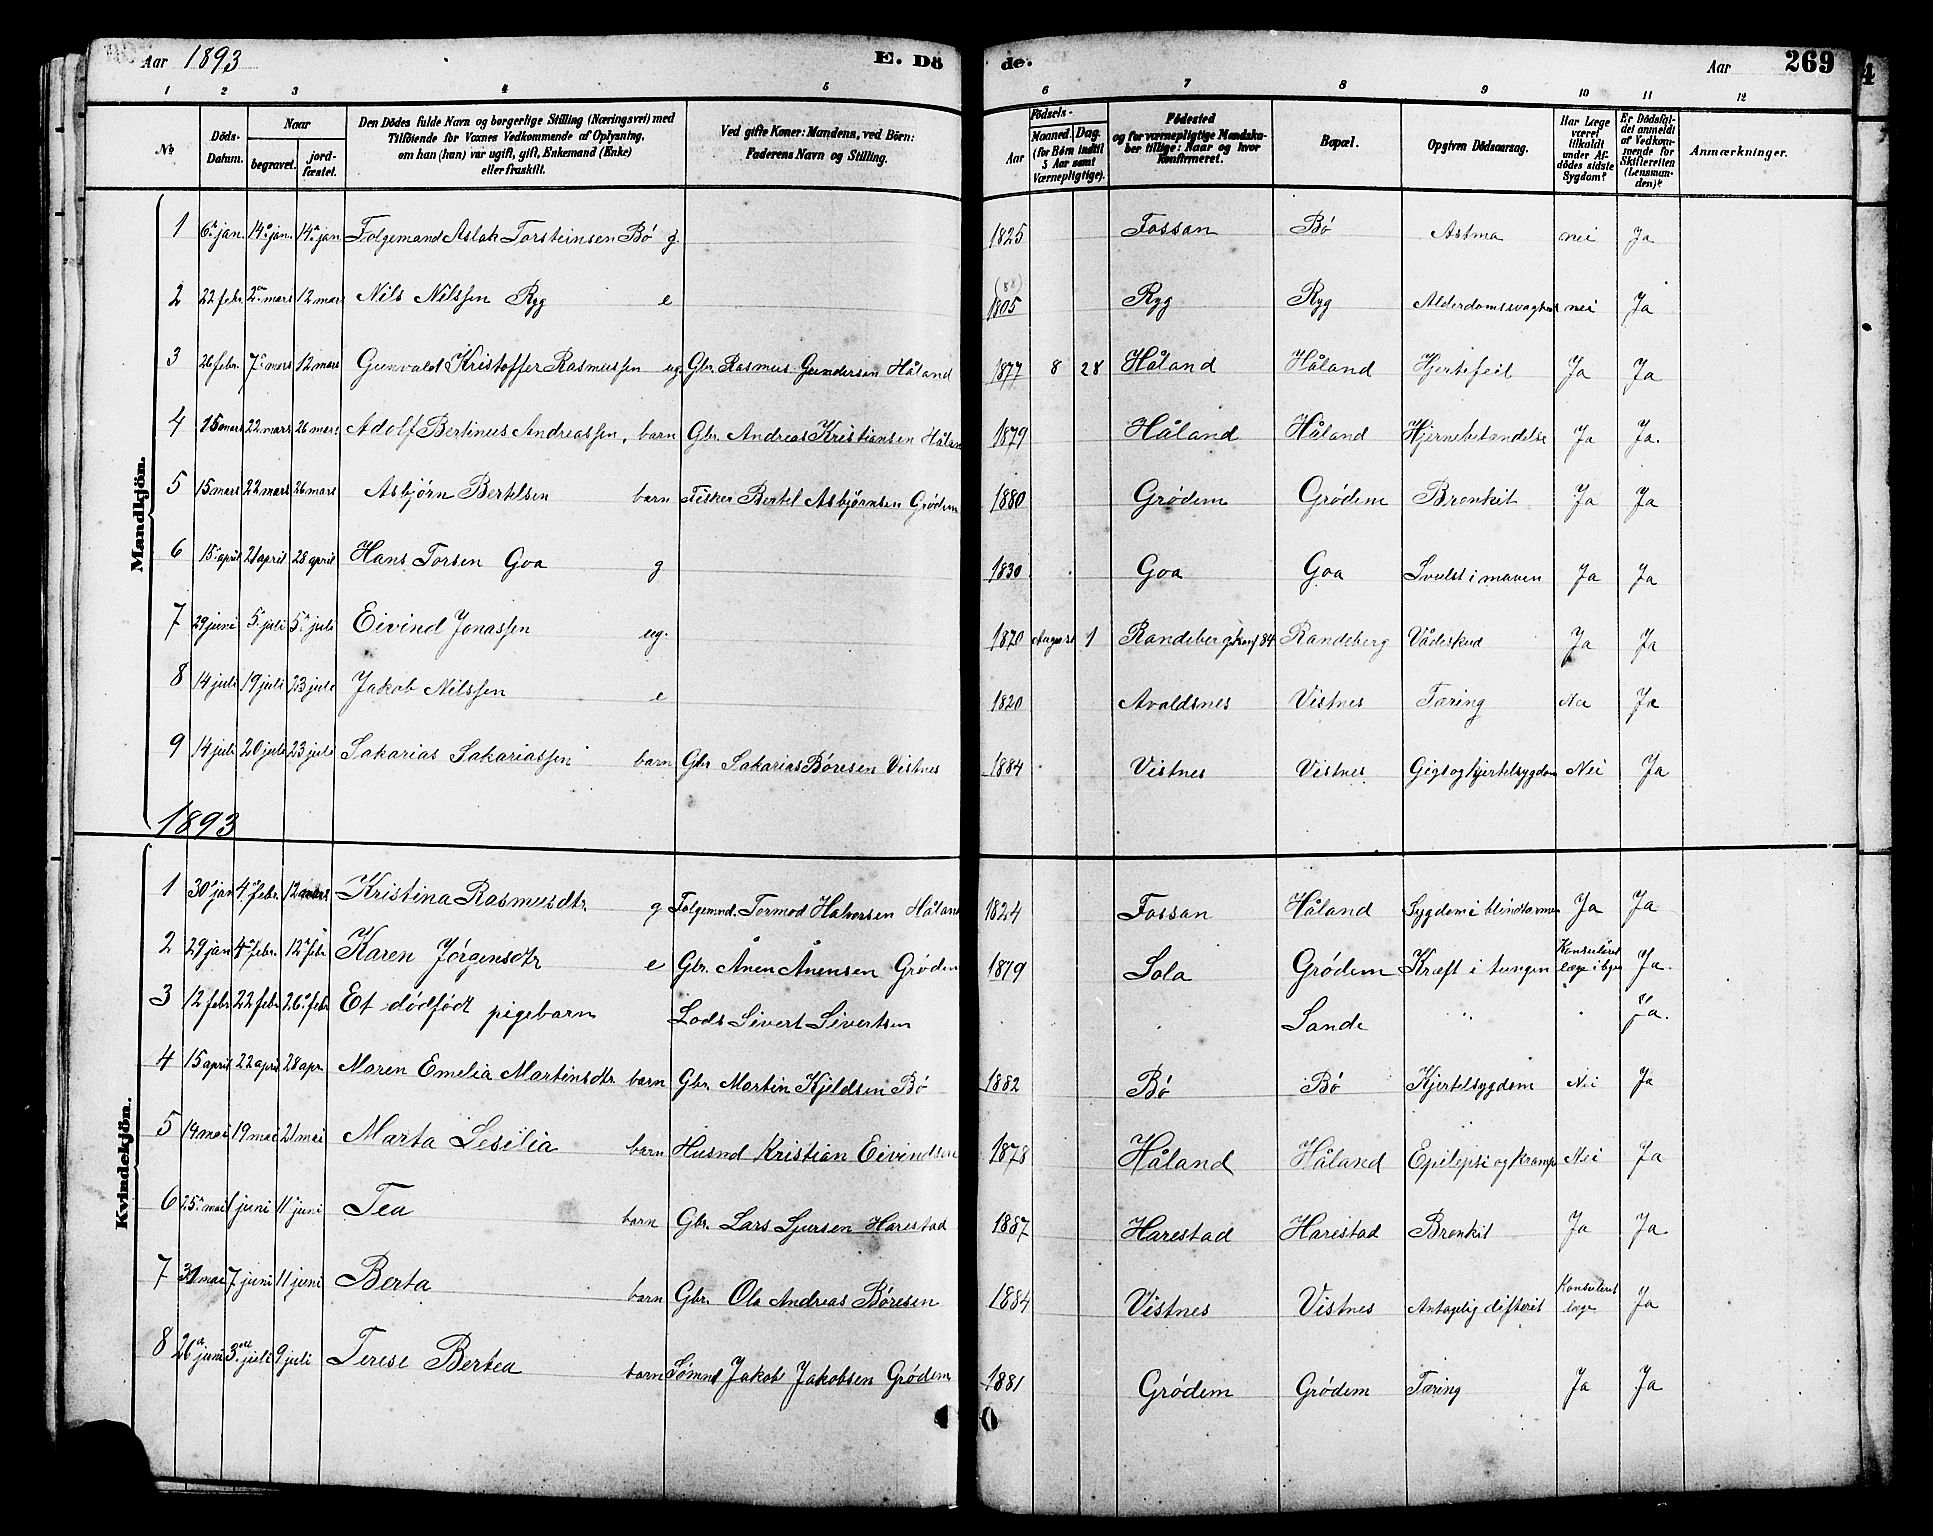 Aar 1893 E. Dö de. Aar 269
1 2 3 4 5 6 7 8 9 10 11 12
No Döds-Datum. Naar begravet. jord-fæstet. Den Dödes fulde Navn og borgerlige Stilling (Næringsvei) med Tilföiende for Voxnes Vedkommende af Oplysning, om han (hun) var ugift, gift, Enkemand (Enke) eller fraskilt. Ved gifte Koner: Mandens, ved Börn: Faderens Navn og Stilling. Födsels- Aar Maaned. Dag. (for Börn indtil 5 Aar samt Værnepligtige). Födested og for værnepligtige Mandskaber tillige: Naar og hvor Konfirmeret. Bopæl. Opgiven Dödsaarsag. Har Læge været tilkaldt under Afdödes sidste Sygdom? Er Dödsfaldet anmeldt af Vedkommende for Skifteretten (Lensmanden)? Anmærkninger.
Mandkjön.
1 6 jan. 14 jan. 14 jan Folgemand Aslak Torsteinsen Bö g. 1825 Fossan Bö Astma nei Ja
2 22 febr. 2 mars 12 mars Nils Nilssen Ryg e (88) 1805 Ryg Ryg Alderdomssvaghed nei Ja
3 26 febr. 7 mars 12 mars Gunvald Kristoffer Rasmussen ug. Gbr Rasmus Gundersen Håland 1877 8 28 Håland Håland Hjertefeil Ja Ja
4 15 mars 22 mars 26 mars Adolf Bertinus Andreassen, barn Gbr. Andreas Kristiansen Håland 1879 Håland Håland Hjernebetandelse Ja Ja.
5 15 mars 22 mars 26 mars Asbjörn Bertelsen barn Fisker Bertel Asbjörnsen Grödem 1880 Grödem Grödem Bronkit Ja Ja
6 15 april 21 april 28 april Hans Torsen Goa g 1830 Goa Goa Svulst i maven Ja Ja
7 29 juni 5 juli 5 juli Eivind Jonassen ug. 1870 August 1 Randeberg konf 84 Randeberg Vådeskud Ja Ja
8 14 juli 19 juli 23 juli Jakob Nilssen e 1820 Avaldsnes Vistnes Tæring Nei Ja
9 14 juli 20 juli 23 juli Sakarias Sakariassen barn Gbr Sakarias Böresen Vistnes 1884 Vistnes Vistnes Gigt og kjertelsygdom Nei Ja
1893
Kvindekjön.
1 30 jan 4 febr. 12 mars Kristina Rasmusdtr. g Folgemnd. Tormod Halvorsen Håland 1824 Fossan Håland Sygdom i blindtarmen Ja Ja
2 29 jan 4 febr. 12 febr Karen Jörgensdtr e Gbr. Ånen Ånensen Grödem 1819 Sola Grödem Kræft i tungen Konsuleret læge i byen Ja.
3 12 febr 22 febr 26 febr Et dödfödt pigebarn Lods Sivert Sivertsen Sande " Ja.
4 15 april 22 april 28 apr. Maren Emelia Martinsdtr barn Gbr. Martin Kjeldsen Bö 1882 Bö Bö Kjertelsygdom Nei Ja
5 14 mai 19 mai 21 mai Marta Sesilia barn Husmd Kristian Eivindsen 1878 Håland Håland Epilepsi og krampe Nei Ja
6 25 mai 1 juni 11 juni Tea barn Gbr. Lars Sjursen Harestad 1887 Harestad Harestad Bronkit Ja Ja
7 31 mai 7 juni 11 juni Berta barn Gbr. Ola Andreas Böresen 1884 Vistnes Vistnes Antagelig difterit Konsuleret læge Ja
8 26 juni 3 juli 9 juli Terese Bertea barn Tömmd Jakob Jakobsen Grödem 1881 Grödem Grödem Tæring Ja Ja